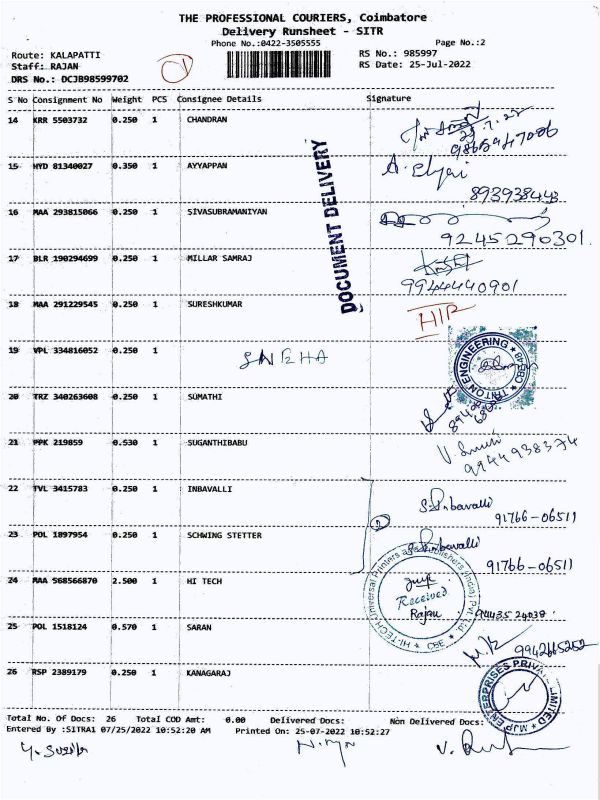 THE PROFESSIONAL COURIERS, Coimbatore
Delivery Runsheet - SITR
Phone No.:0422-3505555 Page No.:2
Route: KALAPATTI RS No.: 985997
Staff: RAJAN RS Date: 25-Jul-2022
DRS No.: DCJB98599702
S No Consignment No Weight PCS Consignee Details Signature
14 KRR 5503732 0.250 1 CHANDRAN
15 HYD 81340027 0.350 1 AYYAPPAN
893938443
16 MAA 293815066 0.250 1 SIVASUBRAMANIYAN
9245290301.
DOCUMENT DELIVERY
17 BLR 190294699 0.250 1 MILLAR SAMRAJ
9944440901
18 MAA 291229545 0.250 1 SURESHKUMAR
19 VPL 334816052 0.250 1 SNEHA
TRITON ENGINEERING
20 TRZ 340263608 0.250 1 SUMATHI
21 PPK 219859 0.530 1 SUGANTHIBABU
9944938374
22 TVL 3415783 0.250 1 INBAVALLI
S. Inbavalli
91766-06511
23 POL 1897954 0.250 1 SCHWING STETTER
Inbavalli
91766-06511
24 MAA 568566870 2.500 1 HI TECH
HI-TECH (Universal Printers and Publishers (India) Pvt. Ltd.
CBE.
Received
Rajan 94435 24038
25 POL 1518124 0.570 1 SARAN
9942665252
26 RSP 2389179 0.250 1 KANAGARAJ
MJP ENTERPRISES PRIVATE LIMITED
Total No. Of Docs: 26 Total COD Amt: 0.00 Delivered Docs: Non Delivered Docs:
Entered By :SITRA1 07/25/2022 10:52:20 AM Printed On: 25-07-2022 10:52:27